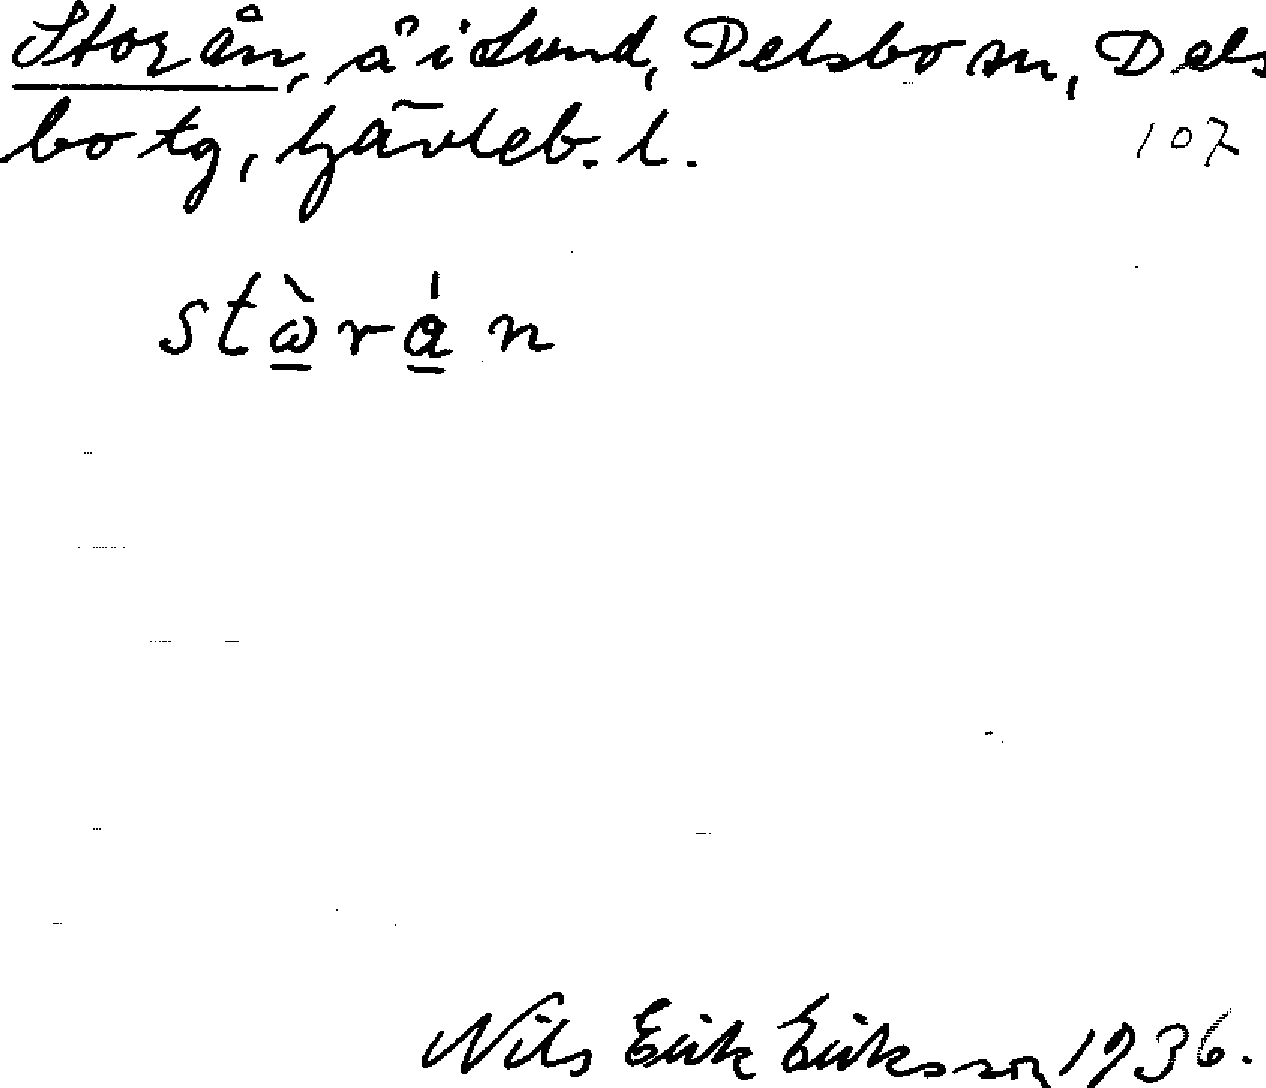 Storån, å i Lund, Delsbo sn, Dels
bo tg, Gävleb. l.
107
stὼ̲rα̲̍n
Nils Erik Eriksson 1936.